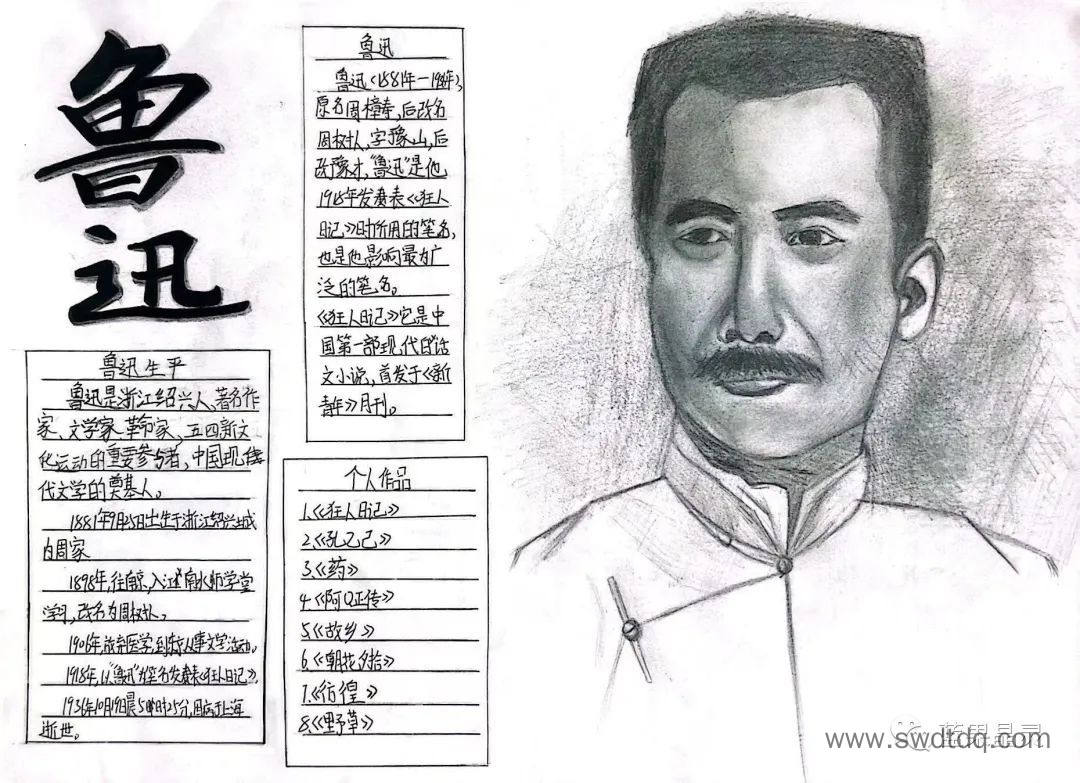 鲁
迅
鲁迅
鲁迅(1881年—1936年),
原名周樟寿,后改名
周树人,字豫山,后
改豫才,"鲁迅"是他
1918年发表《狂人
日记》时所用的笔名,
也是他影响最为广
泛的笔名。
《狂人日记》它是中
国第一部现代白话
文小说,首发于《新
青年》月刊。
鲁迅生平
鲁迅是浙江绍兴人、著名作
家、文学家、革命家、五四新文
化运动的重要参与者,中国现
代文学的奠基人。
1881年9月25日出生于浙江绍兴城
内周家
1898年,往南京,入江南水师学堂
学习,改名为周树人。
1906年,放弃医学,到东京从事文学活动。
1918年,以"鲁迅"为笔名发表《狂人日记》。
1936年10月19日晨5时25分,因病于上海
逝世。
个人作品
1.《狂人日记》
2.《孔乙己》
3.《药》
4.《阿Q正传》
5.《故乡》
6.《朝花夕拾》
7.《彷徨》
8.《野草》
www.swdtdq.com